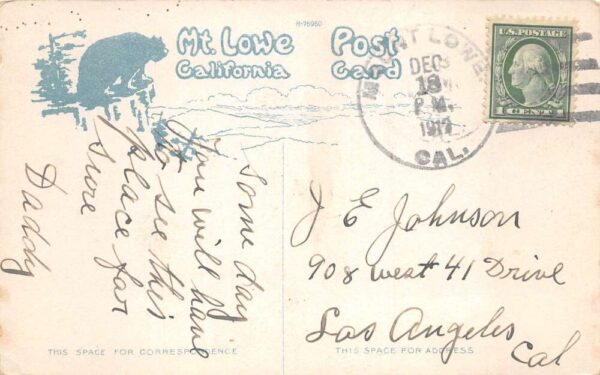 H-76960
Mt. Lowe
California
Post
Card
MOUNT LOWE
DEC
18
P.M.
1917
CAL.
U.S. POSTAGE
1 CENT 1
Some day
You will have
to see this
place for
sure
Daddy
J E Johnson
908 west 41 Drive
Los Angeles
Cal
THIS SPACE FOR CORRESPONDENCE
THIS SPACE FOR ADDRESS